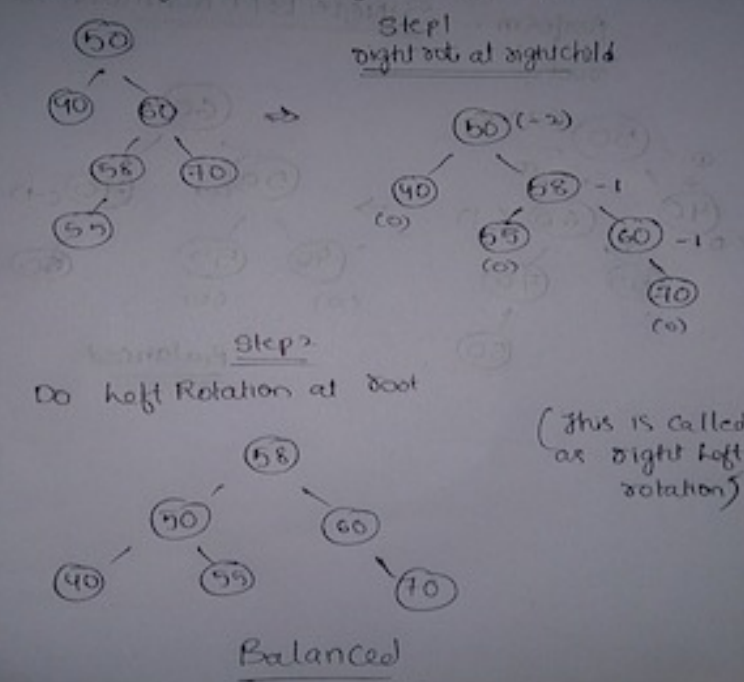 Step1
right rot. at rightchild
50
40
60
58
70
55
50 (-2)
40
(0)
58 -1
55
(0)
60 -1
70
(0)
Step2
Do Left Rotation at root
(This is called
as right Left
rotation)
58
50
60
40
55
70
Balanced